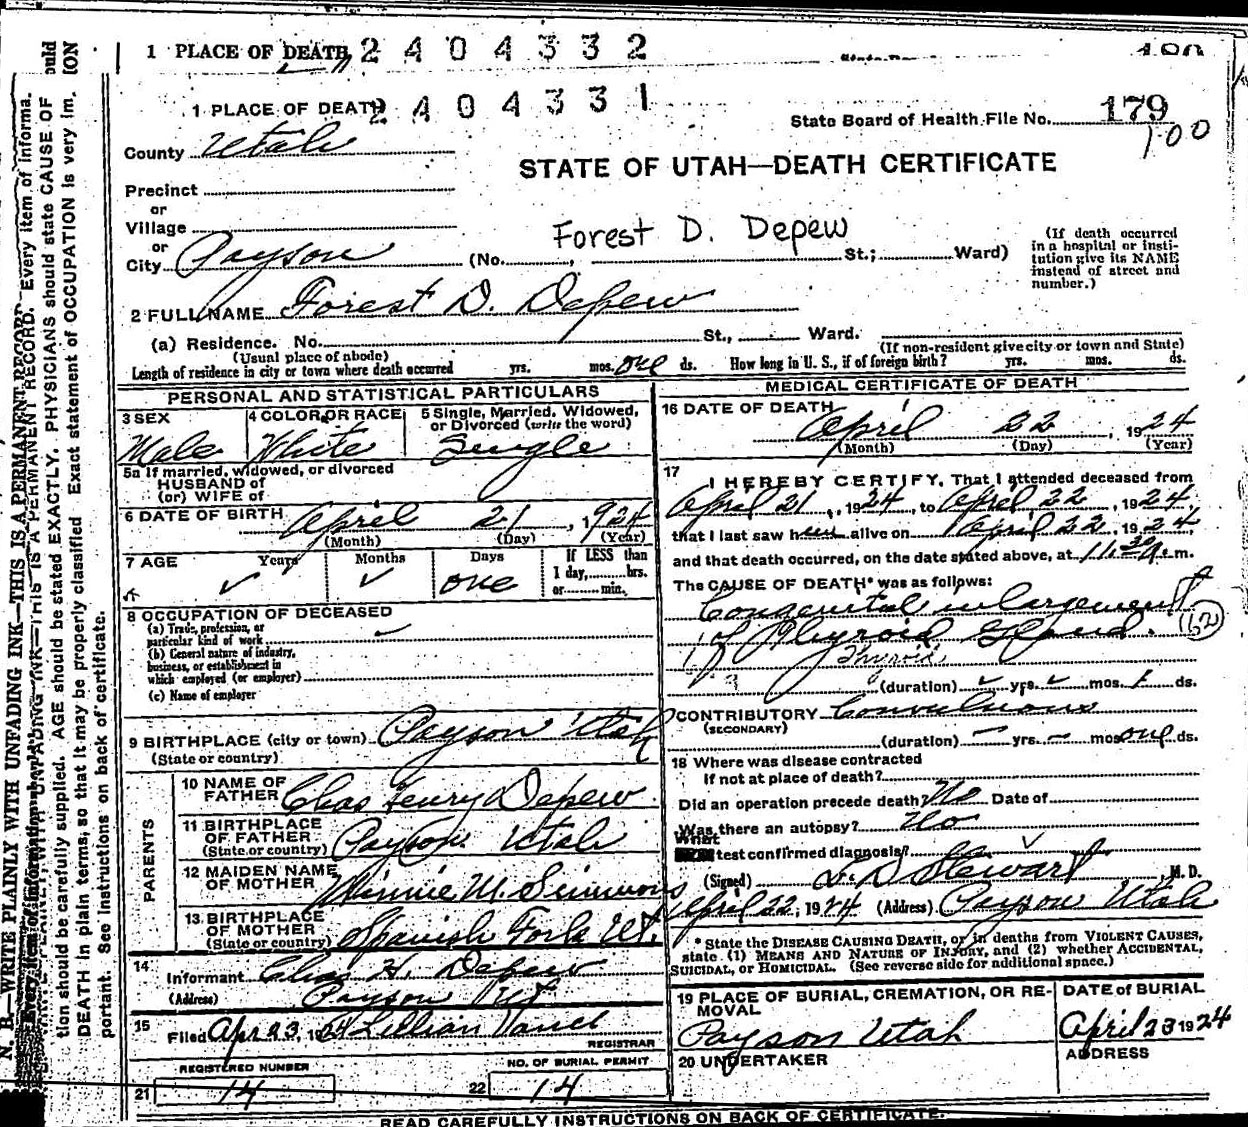 1 PLACE OF DEATH 2404332
1 PLACE OF DEATH 2404331
State Board of Health File No. 179
1.00
County Utah
STATE OF UTAH—DEATH CERTIFICATE
Precinct
or
Village
or
City Payson (No. , St.; Ward)
Forest D. Depew
(If death occurred in a hospital or insti-
tution give its NAME
instead of street and
number.)
2 FULL NAME Forest D. Depew
(a) Residence. No. St., Ward.
(Usual place of abode) (If non-resident give city or town and State)
Length of residence in city or town where death occurred yrs. mos. one ds. How long in U. S., if of foreign birth? yrs. mos. ds.
PERSONAL AND STATISTICAL PARTICULARS
3 SEX Male
4 COLOR OR RACE White
5 Single, Married, Widowed,
or Divorced (write the word)
Single
5a If married, widowed, or divorced
HUSBAND of
(or) WIFE of
6 DATE OF BIRTH April 21, 1924
(Month) (Day) (Year)
7 AGE Years Months Days one
If LESS than
1 day, hrs.
or min.
8 OCCUPATION OF DECEASED
(a) Trade, profession, or
particular kind of work
(b) General nature of industry,
business, or establishment in
which employed (or employer)
(c) Name of employer
9 BIRTHPLACE (city or town) Payson Utah
(State or country)
PARENTS
10 NAME OF
FATHER Chas Henry Depew
11 BIRTHPLACE
OF FATHER
(State or country) Payson Utah
12 MAIDEN NAME
OF MOTHER Minnie M. Simmons
13 BIRTHPLACE
OF MOTHER
(State or country) Spanish Fork Ut.
14
Informant Chas H. Depew
(Address) Payson Ut
15
Filed Apr 23, 1924 Lillian
REGISTRAR
REGISTERED NUMBER
21 14
NO. OF BURIAL PERMIT
22 14
MEDICAL CERTIFICATE OF DEATH
16 DATE OF DEATH April 22, 1924
(Month) (Day) (Year)
17
I HEREBY CERTIFY, That I attended deceased from
April 21, 1924, to April 22, 1924,
that I last saw him alive on April 22, 1924,
and that death occurred, on the date stated above, at 11.30 a.m.
The CAUSE OF DEATH* was as follows:
Congenital inlargement
of Thyroid Gland. 152
Thyroid
(duration) yrs. mos. 1 ds.
CONTRIBUTORY Convulsions
(SECONDARY)
(duration) — yrs. — mos. one ds.
18 Where was disease contracted
if not at place of death?
Did an operation precede death? No Date of
Was there an autopsy? No
What test confirmed diagnosis?
(Signed) L. D. Stewart, M. D.
April 22, 1924 (Address) Payson Utah
* State the DISEASE CAUSING DEATH, or in deaths from VIOLENT CAUSES,
state (1) MEANS AND NATURE OF INJURY, and (2) whether ACCIDENTAL,
SUICIDAL, or HOMICIDAL. (See reverse side for additional space.)
19 PLACE OF BURIAL, CREMATION, OR RE-
MOVAL
Payson Utah
DATE of BURIAL
April 23 1924
20 UNDERTAKER
ADDRESS
READ CAREFULLY INSTRUCTIONS ON BACK OF CERTIFICATE.
N. B.—WRITE PLAINLY WITH UNFADING INK—THIS IS A PERMANENT RECORD. Every item of informa-
tion should be carefully supplied. AGE should be stated EXACTLY. PHYSICIANS should state CAUSE OF
DEATH in plain terms, so that it may be properly classified. Exact statement of OCCUPATION is very im-
portant. See instructions on back of certificate.